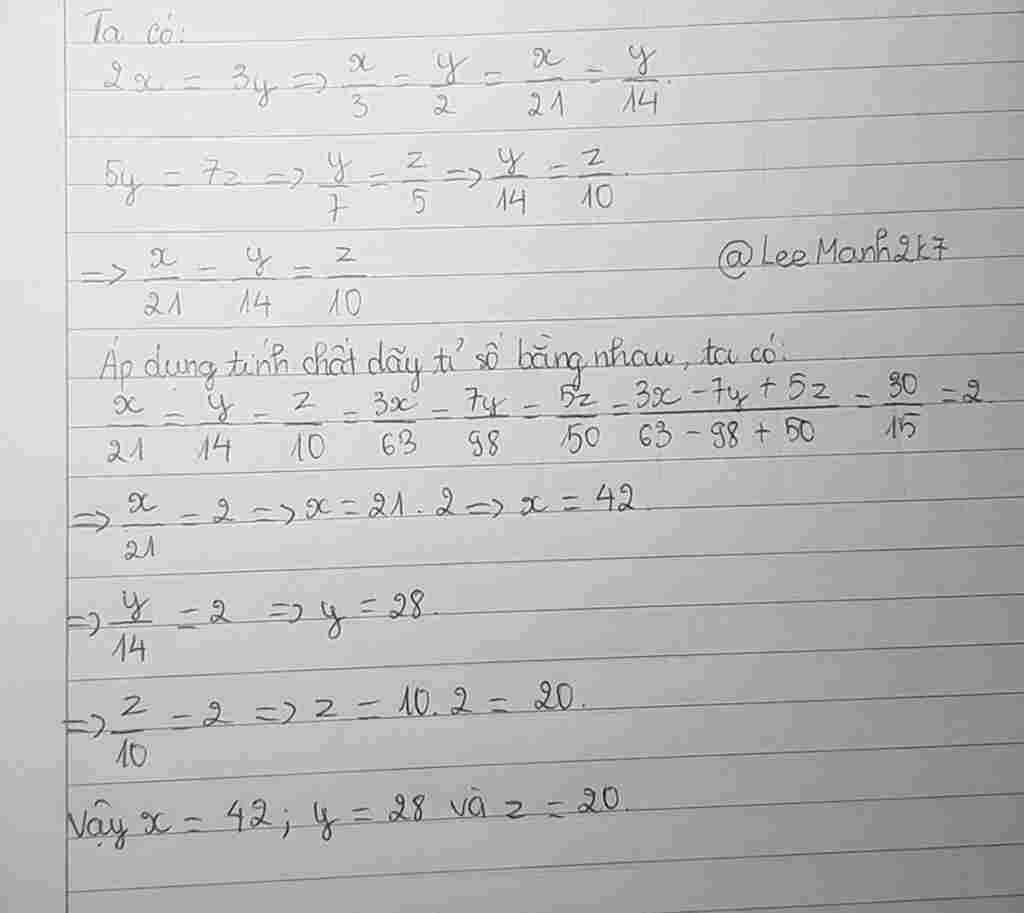 Ta có:
2x = 3y => x/3 = y/2 = x/21 = y/14.
5y = 7z => y/7 = z/5 => y/14 = z/10.
=> x/21 = y/14 = z/10
@LeeManh2k7
Áp dụng tính chất dãy tỉ số bằng nhau, ta có:
x/21 = y/14 = z/10 = 3x/63 = 7y/98 = 5z/50 = (3x - 7y + 5z)/(63 - 98 + 50) = 30/15 = 2
=> x/21 = 2 => x = 21 . 2 => x = 42
=> y/14 = 2 => y = 28.
=> z/10 = 2 => z = 10. 2 = 20.
Vậy x = 42 ; y = 28 và z = 20.